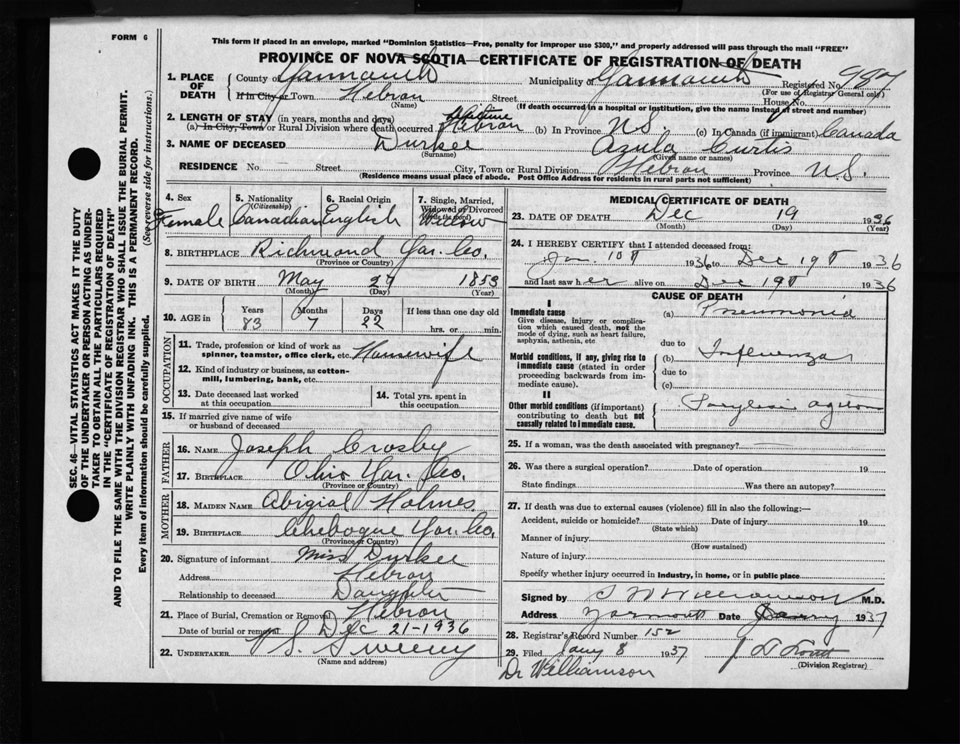 FORM 6
This form if placed in an envelope, marked "Dominion Statistics—Free, penalty for improper use $300," and properly addressed will pass through the mail "FREE"
PROVINCE OF NOVA SCOTIA—CERTIFICATE OF REGISTRATION OF DEATH
1. PLACE OF DEATH County of Yarmouth Municipality of Yarmouth Registered No. 987
(For use of Registrar General only)
If in City or Town Hebron Street House No.
(Name) (If death occurred in a hospital or institution, give the name instead of street and number)
2. LENGTH OF STAY (in years, months and days) lifetime
(a) In City, Town or Rural Division where death occurred Hebron (b) In Province N.S. (c) In Canada (if immigrant) Canada
3. NAME OF DECEASED Durkee Azula Curtis
(Surname) (Given name or names)
RESIDENCE No. Street City, Town or Rural Division Hebron Province N.S.
(Residence means usual place of abode. Post Office Address for residents in rural parts not sufficient)
4. Sex Female
5. Nationality (Citizenship) Canadian
6. Racial Origin English
7. Single, Married, Widowed or Divorced Widow
8. BIRTHPLACE Richmond Yar. Co.
(Province or Country)
9. DATE OF BIRTH May 29 1853
(Month) (Day) (Year)
10. AGE in Years 83 Months 7 Days 22 If less than one day old hrs. or min.
OCCUPATION
11. Trade, profession or kind of work as spinner, teamster, office clerk, etc. Housewife
12. Kind of industry or business, as cotton-mill, lumbering, bank, etc.
13. Date deceased last worked at this occupation
14. Total yrs. spent in this occupation
15. If married give name of wife or husband of deceased
FATHER
16. NAME Joseph Crosby
17. BIRTHPLACE Ohio Yar. Co.
(Province or Country)
MOTHER
18. MAIDEN NAME Abigial Holmes
19. BIRTHPLACE Chebogue Yar. Co.
(Province or Country)
20. Signature of informant Miss Durkee
Address Hebron
Relationship to deceased Daughter
21. Place of Burial, Cremation or Removal Hebron
Date of burial or removal Dec 21-1936
22. UNDERTAKER V S. Sweeny
(Name and address)
MEDICAL CERTIFICATE OF DEATH
23. DATE OF DEATH Dec 19 1936
(Month) (Day) (Year)
24. I HEREBY CERTIFY that I attended deceased from:
Jan. 10 1936 to Dec 19 1936
and last saw her alive on Dec 19 1936
CAUSE OF DEATH
I
Immediate cause (a) Pneumonia
Give disease, injury or complication which caused death, not the mode of dying, such as heart failure, asphyxia, asthenia, etc
due to
Morbid conditions, if any, giving rise to immediate cause (stated in order proceeding backwards from immediate cause).
(b) Influenza
due to
(c)
II
Other morbid conditions (if important) contributing to death but not causally related to immediate cause.
25. If a woman, was the death associated with pregnancy?
26. Was there a surgical operation? Date of operation 19
State findings Was there an autopsy?
27. If death was due to external causes (violence) fill in also the following:—
Accident, suicide or homicide? Date of injury 19
(State which)
Manner of injury
(How sustained)
Nature of injury
Specify whether injury occurred in industry, in home, or in public place
Signed by S W Williamson M.D.
Address Yarmouth Date 1937
28. Registrar's Record Number 152
29. Filed Jany 8 1937
(Division Registrar)
Dr Williamson
SEC. 46—VITAL STATISTICS ACT MAKES IT THE DUTY
OF THE UNDERTAKER OR PERSON ACTING AS UNDER-
TAKER TO OBTAIN ALL THE PARTICULARS REQUIRED
IN THE "CERTIFICATE OF REGISTRATION OF DEATH"
AND TO FILE THE SAME WITH THE DIVISION REGISTRAR WHO SHALL ISSUE THE BURIAL PERMIT.
WRITE PLAINLY WITH UNFADING INK. THIS IS A PERMANENT RECORD.
Every item of information should be carefully supplied. (See reverse side for instructions.)